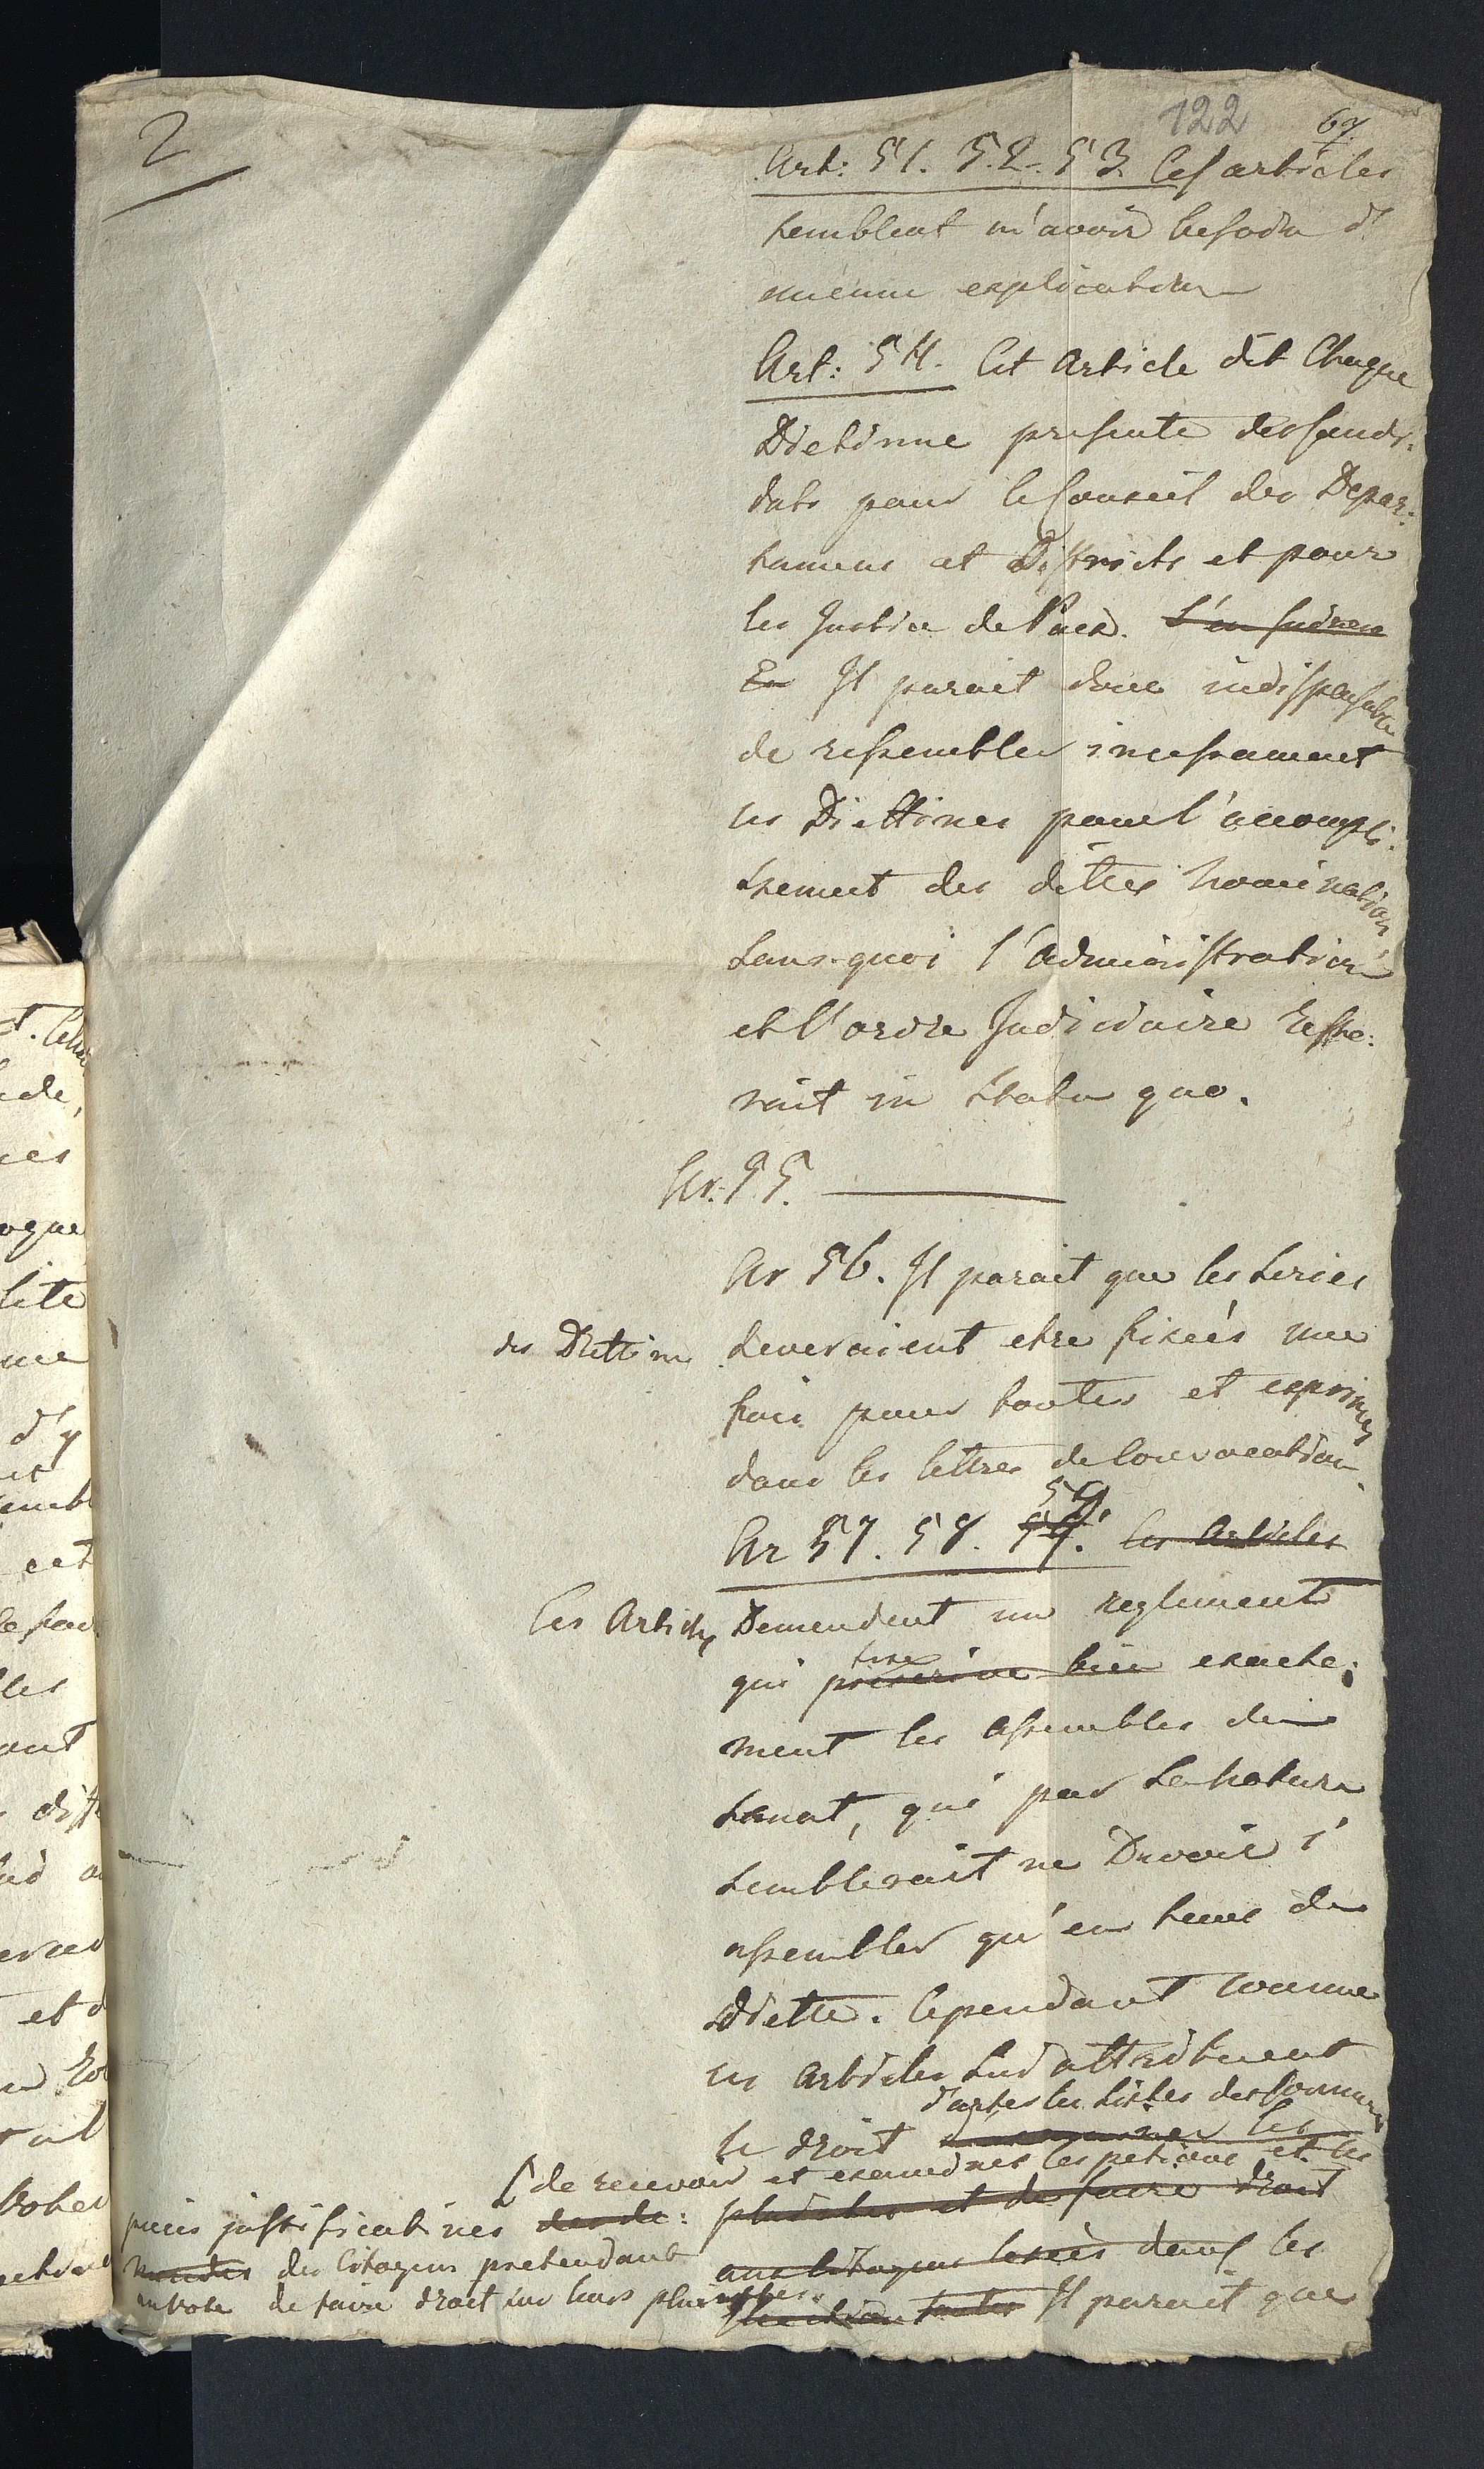 2
122
67.
Art: 51. 52. 53. Ces articles
semblent n'avoir besoin d'
aucune explication
Art: 54. Cet Article dit Chaque
Dietinne presente des Candi:
dats pour le Conseil des Depar:
tamens et Districts et pour
les Justice de Paix.
En Il parait donc indispensable
de ressembler incessament
les Diettines pour l'accompli:
ssement des dittes nominations
sans-quoi l'administration
et l'ordre Judiciaire reste:
rait in statu quo.
Ar. 55.
Ar 56. Il parait que les series
des Diettines
deveraient etre fixeés une
fois pour toutes et exprimés
dans les lettres de Convocation.
59.
Ar 57. 58. 59. les Articles
Ces Articles
Demendent un reglement
fixe
qui prescrive bien exacte:
ment les assembles du
senat, qui par sa nature
semblerait ne Devoir s'
assembler qu'en tems de
Diette. Cependant comme
ces articles lui attribuent
d'arreter les listes des Communes
le droit d'examiner les
de recevoir et examiner les petitions et les
pieces justificatives des de:
plaintes et de faire droit
mandes des Citoyens pretendant
aux Citoyens lesés dans les
au vote de faire droit sur leurs plaintes.
Il parait que